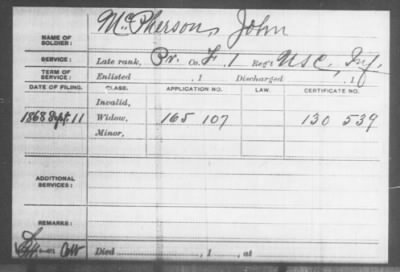 NAME OF SOLDIER: McPherson, John
SERVICE: Late rank, Pr. Co. F, 1 Reg't USC, Inf.
TERM OF SERVICE: Enlisted , 1 Discharged , 1
DATE OF FILING. CLASS. APPLICATION NO. LAW. CERTIFICATE NO.
Invalid,
1868 Sept 11 Widow, 165 107 130 539
Minor,
ADDITIONAL SERVICES:
REMARKS:
Died , 1 , at